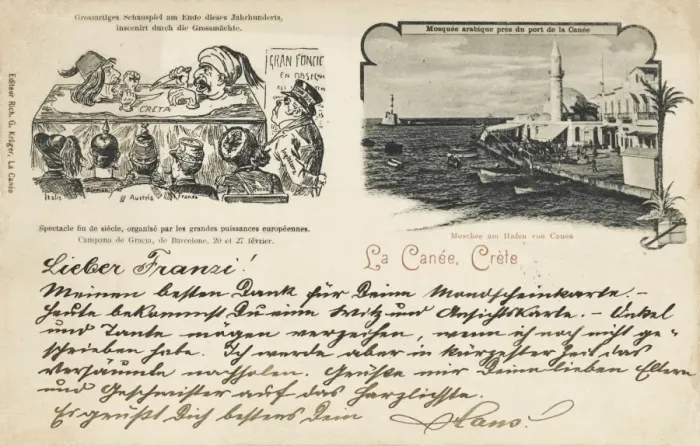 Grossartiges Schauspiel am Ende dieses Jahrhunderts,
inscenirt durch die Grossmächte.
GRAN FUNCIÓ
CRETA
Italia
Austria
Spectacle fin de siècle, organisé par les grandes puissances européennes.
Campana de Gracia, de Barcelone, 20 et 27 février.
Editeur Rich. G. Krüger, La Canée
Mosquée arabique près du port de la Canée
Moschee am Hafen von Canea
La Canée, Crète
Lieber Franzi!
Meinen besten Dank für Deine Mondscheinkarte. –
Heute bekommst Du eine Witz und Ansichtskarte. – Onkel
und Tante mögen verzeihen, wenn ich noch nicht ge-
schrieben habe. Ich werde aber in kürzester Zeit das
Versäumte nachholen. Grüsse mir Deine lieben Eltern
und Geschwister auf das herzlichste.
Es grüßt Dich bestens Dein Hans!